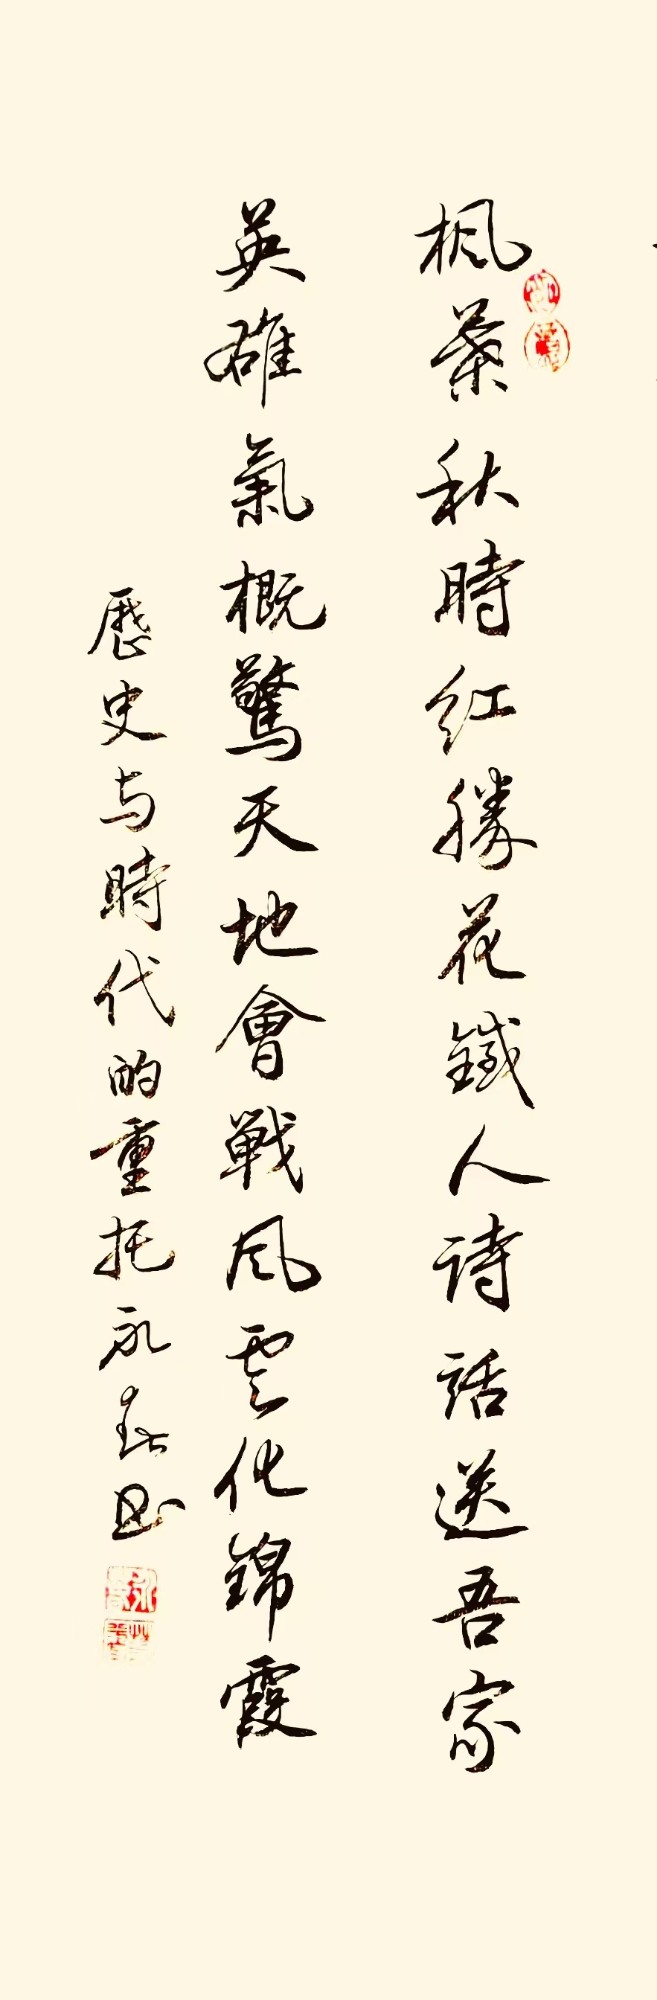 枫葉秋時红勝花鐵人诗話送吾家
英雄氣概驚天地會戰风雲化錦霞
歷史与時代的重托永春书